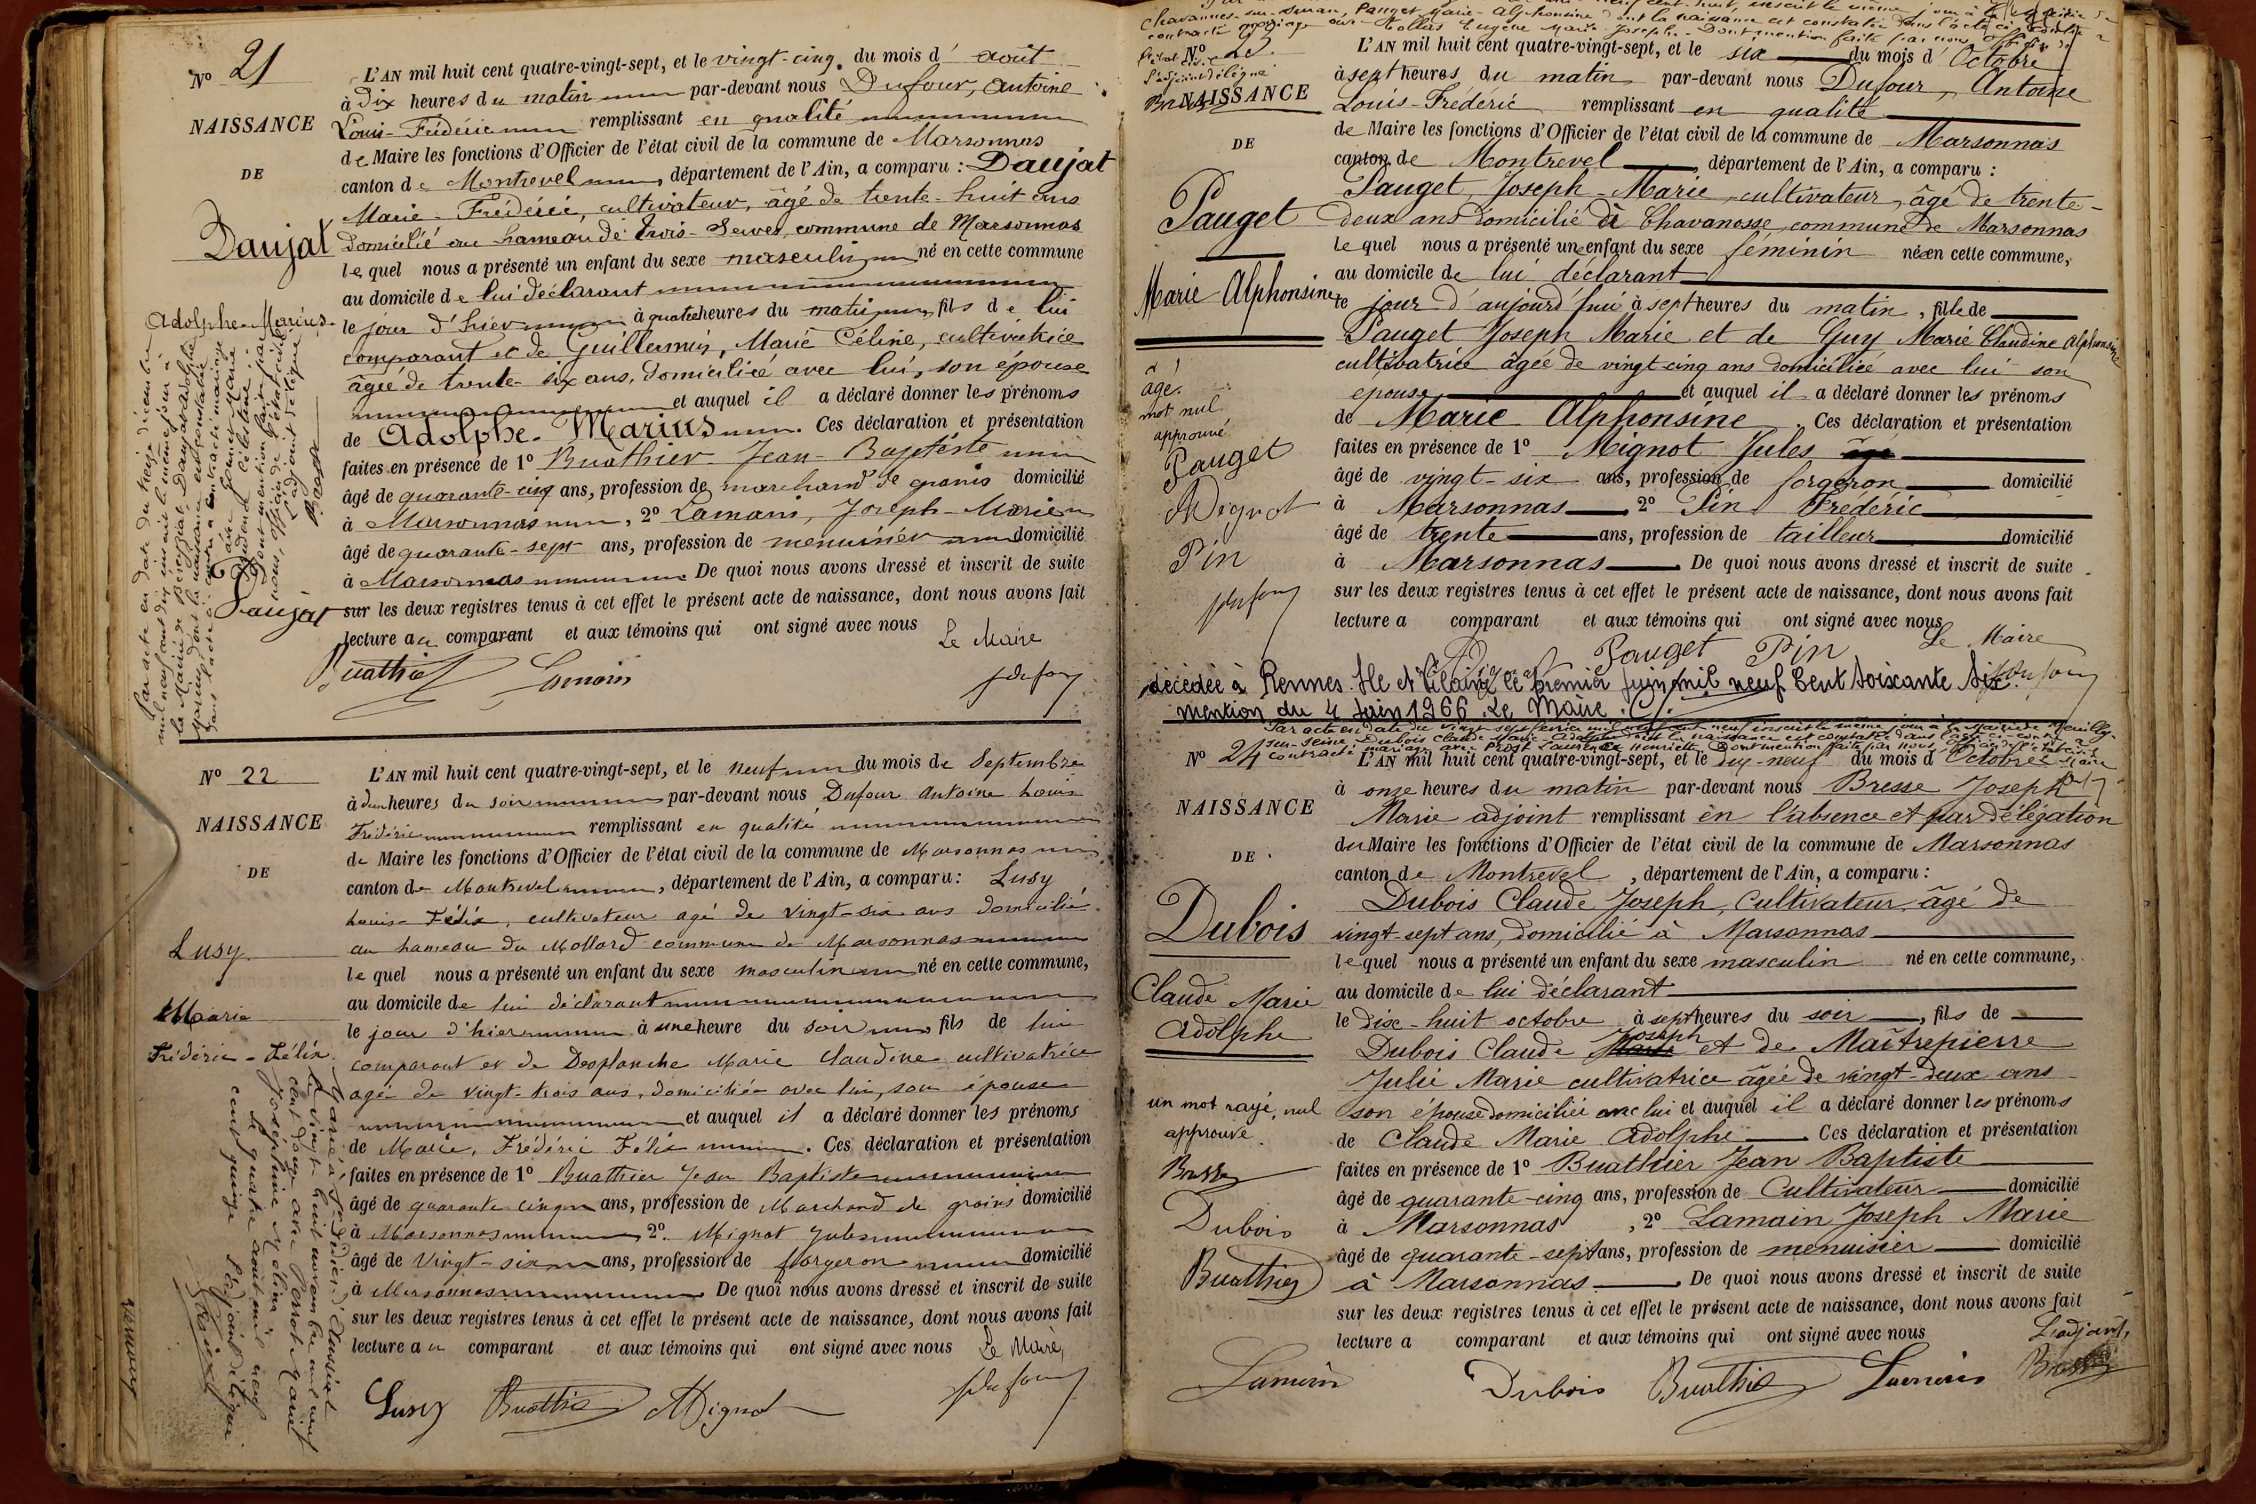 Nº 21
NAISSANCE
DE
Daujat
Adolphe-Marius
L'AN mil huit cent quatre-vingt-sept, et le vingt-cinq du mois d'août
à dix heures du matin par-devant nous Dufour, Antoine
Louis-Frédéric remplissant en qualité
de Maire les fonctions d'Officier de l'état civil de la commune de Marsonnas
canton de Montrevel, département de l'Ain, a comparu : Daujat
Marie-Frédéric, cultivateur, âgé de trente-huit ans
domicilié au hameau de Trois-Serves, commune de Marsonnas
lequel nous a présenté un enfant du sexe masculin né en cette commune
au domicile de lui déclarant
le jour d'hier à quatre heures du matin, fils de lui
comparant et de Guillermin, Marie Céline, cultivatrice
âgée de trente-six ans, domiciliée avec lui, son épouse
et auquel il a déclaré donner les prénoms
de Adolphe-Marius. Ces déclaration et présentation
faites en présence de 1º Buathier-Jean-Baptiste
âgé de quarante-cinq ans, profession de marchand de grains domicilié
à Marsonnas, 2º Lamain, Joseph-Marie
âgé de quarante-sept ans, profession de menuisier domicilié
à Marsonnas De quoi nous avons dressé et inscrit de suite
sur les deux registres tenus à cet effet le présent acte de naissance, dont nous avons fait
lecture au comparant et aux témoins qui ont signé avec nous
Le Maire
Daujat
Buathier Lamain Dufour
Nº 22
NAISSANCE
DE
Lusy
Marie
Frédéric-Félix
L'AN mil huit cent quatre-vingt-sept, et le neuf du mois de Septembre
à deux heures du soir par-devant nous Dufour Antoine Louis
Frédéric remplissant en qualité
de Maire les fonctions d'Officier de l'état civil de la commune de Marsonnas
canton de Montrevel, département de l'Ain, a comparu : Lusy
Louis Félix, cultivateur agé de vingt-six ans domicilié
au hameau du Mollard commune de Marsonnas
lequel nous a présenté un enfant du sexe masculin né en cette commune,
au domicile de lui déclarant
le jour d'hier à une heure du soir fils de lui
comparant et de Desplanche Marie Claudine cultivatrice
agée de vingt-trois ans, domiciliée avec lui, son épouse
et auquel il a déclaré donner les prénoms
de Marie, Frédéric Félix. Ces déclaration et présentation
faites en présence de 1º Buathier Jean Baptiste
âgé de quarante cinq ans, profession de Marchand de grains domicilié
à Marsonnas, 2º Mignot Jules
âgé de Vingt-six ans, profession de forgeron domicilié
à Marsonnas De quoi nous avons dressé et inscrit de suite
sur les deux registres tenus à cet effet le présent acte de naissance, dont nous avons fait
lecture au comparant et aux témoins qui ont signé avec nous Le Maire,
Lusy Buathier Mignot Dufour
Nº 23
NAISSANCE
DE
Pauget
Marie Alphonsine
âgé.
mot nul
approuvé
Pauget
Mignot
Pin
Dufour
L'AN mil huit cent quatre-vingt-sept, et le six du mois d'Octobre
à sept heures du matin par-devant nous Dufour, Antoine
Louis-Frédéric remplissant en qualité
de Maire les fonctions d'Officier de l'état civil de la commune de Marsonnas
canton de Montrevel, département de l'Ain, a comparu :
Pauget Joseph-Marie cultivateur, âgé de trente-
deux ans domicilié à Chavanosse commune de Marsonnas
lequel nous a présenté un enfant du sexe féminin née en cette commune,
au domicile de lui déclarant
le jour d'aujourd'hui à sept heures du matin, fille de
Pauget Joseph Marie et de Guy Marie Claudine Alphonsine
cultivatrice âgée de vingt-cinq ans domiciliée avec lui son
épouse et auquel il a déclaré donner les prénoms
de Marie Alphonsine Ces déclaration et présentation
faites en présence de 1º Mignot Jules âgé
âgé de vingt-six ans, profession de forgeron domicilié
à Marsonnas 2º Pin Frédéric
âgé de trente ans, profession de tailleur domicilié
à Marsonnas De quoi nous avons dressé et inscrit de suite
sur les deux registres tenus à cet effet le présent acte de naissance, dont nous avons fait
lecture a comparant et aux témoins qui ont signé avec nous
Le Maire
Mignot Pauget Pin Dufour
décédée à Rennes. Ile et Vilaine le premier juin mil neuf Cent Soixante Six
mention du 4 Juin 1966. Le Maire.
Nº 24
NAISSANCE
DE
Dubois
Claude Marie
Adolphe
un mot rayé, nul
approuvé.
Bresse
Dubois
Buathier
Lamain
L'AN mil huit cent quatre-vingt-sept, et le dix-neuf du mois d'Octobre
à onze heures du matin par-devant nous Bresse Joseph
Marie adjoint remplissant en l'absence et par délégation
du Maire les fonctions d'Officier de l'état civil de la commune de Marsonnas
canton de Montrevel, département de l'Ain, a comparu :
Dubois Claude Joseph, Cultivateur, âgé de
vingt-sept ans, domicilié à Marsonnas
lequel nous a présenté un enfant du sexe masculin né en cette commune,
au domicile de lui déclarant
le dix-huit octobre à sept heures du soir, fils de
Dubois Claude Joseph et de Maîtrepierre
Julie Marie cultivatrice âgée de vingt-deux ans
son épouse domiciliée avec lui et auquel il a déclaré donner les prénoms
de Claude Marie Adolphe Ces déclaration et présentation
faites en présence de 1º Buathier Jean Baptiste
âgé de quarante-cinq ans, profession de Cultivateur domicilié
à Marsonnas, 2º Lamain Joseph Marie
âgé de quarante-sept ans, profession de menuisier domicilié
à Marsonnas De quoi nous avons dressé et inscrit de suite
sur les deux registres tenus à cet effet le présent acte de naissance, dont nous avons fait
lecture a comparant et aux témoins qui ont signé avec nous
L'adjoint,
Dubois Buathier Lamain Bresse